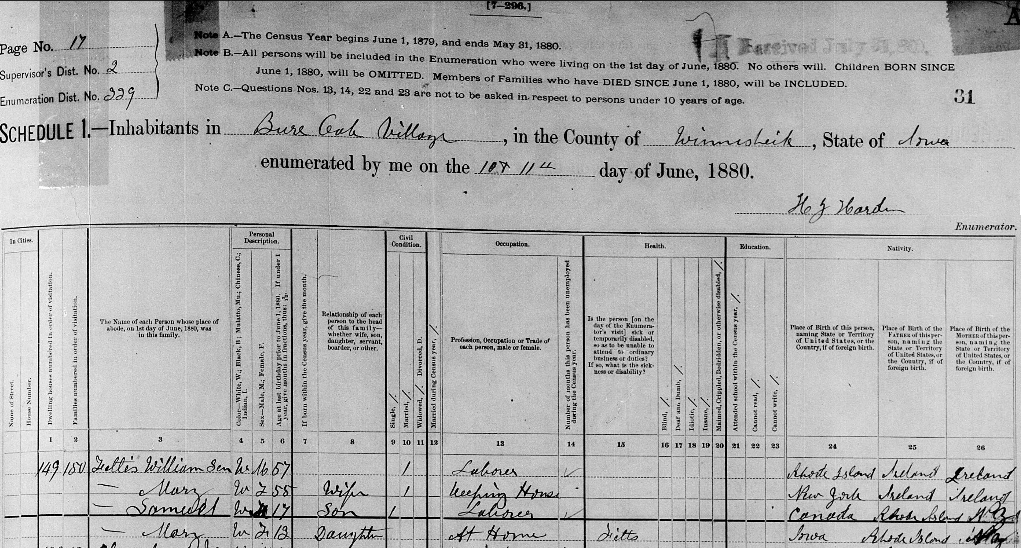 [7-296.]
A
Page No. 17
Supervisor's Dist. No. 2
Enumeration Dist. No. 229
Note A.—The Census Year begins June 1, 1879, and ends May 31, 1880.
Note B.—All persons will be included in the Enumeration who were living on the 1st day of June, 1880. No others will. Children BORN SINCE
June 1, 1880, will be OMITTED. Members of Families who have DIED SINCE June 1, 1880, will be INCLUDED.
Note C.—Questions Nos. 13, 14, 22 and 23 are not to be asked in respect to persons under 10 years of age.
31
SCHEDULE 1.—Inhabitants in Burr Oak Village, in the County of Winnesheik, State of Iowa
enumerated by me on the 10 & 11th day of June, 1880.
Enumerator.
In Cities. Personal Description. Civil Condition. Occupation. Health. Education. Nativity.
Name of Street.
House Number.
Dwelling houses numbered in order of visitation.
Families numbered in order of visitation.
The Name of each Person whose place of
abode, on 1st day of June, 1880, was
in this family.
Color—White, W.; Black, B.; Mulatto, Mu.; Chinese, C.;
Indian, I.
Sex—Male, M.; Female, F.
Age at last birthday prior to June 1, 1880. If under 1
year, give months in fractions, thus:
If born within the Census year, give the month.
Relationship of each
person to the head
of this family—
whether wife, son,
daughter, servant,
boarder, or other.
Single, /.
Married, /.
Widowed, /. Divorced, D.
Married during Census year, /.
Profession, Occupation or Trade of
each person, male or female.
Number of months this person has been unemployed
during the Census year.
Is the person [on the
day of the Enumera-
tor's visit] sick or
temporarily disabled,
so as to be unable to
attend to ordinary
business or duties?
If so, what is the sick-
ness or disability?
Blind, /.
Deaf and Dumb, /.
Idiotic, /.
Insane, /.
Maimed, Crippled, Bedridden, or otherwise disabled, /.
Attended school within the Census year, /.
Cannot read, /.
Cannot write, /.
Place of Birth of this person,
naming State or Territory
of United States, or the
Country, if of foreign birth.
Place of Birth of the
FATHER of this per-
son, naming the
State or Territory of
United States, or the
Country, if of
foreign birth.
Place of Birth of the
MOTHER of this per-
son, naming the
State or Territory of
United States, or the
Country, if of
foreign birth.
1 2 3 4 5 6 7 8 9 10 11 12 13 14 15 16 17 18 19 20 21 22 23 24 25 26
149 150 William Sen W M 57 / Laborer Rhode Island Ireland Ireland
— Mary W F 55 Wife / Keeping House New York Ireland Ireland
— W 17 Son / Laborer Canada Rhode Island N.Y.
— Mary W F 13 Daughter At Home Iowa Rhode Island